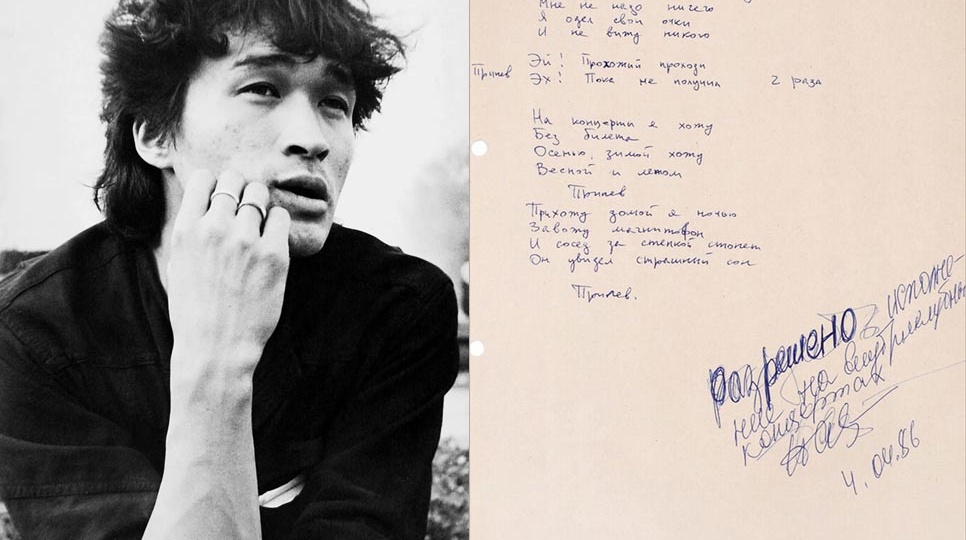 Мне не надо ничего
Я одел свои очки
И не вижу никого
Эй! Прохожий проходи
Припев
Эх! Пока не получил 2 раза
На концерты я хожу
Без билета
Осенью, зимой хожу
Весной и летом
Припев
Прихожу домой я ночью
Завожу магнитофон
И сосед за стенкой стонет
Он увидел страшный сон
Припев.
Разрешено исполне-
ние на внутриклубных
концертах
4.04.86